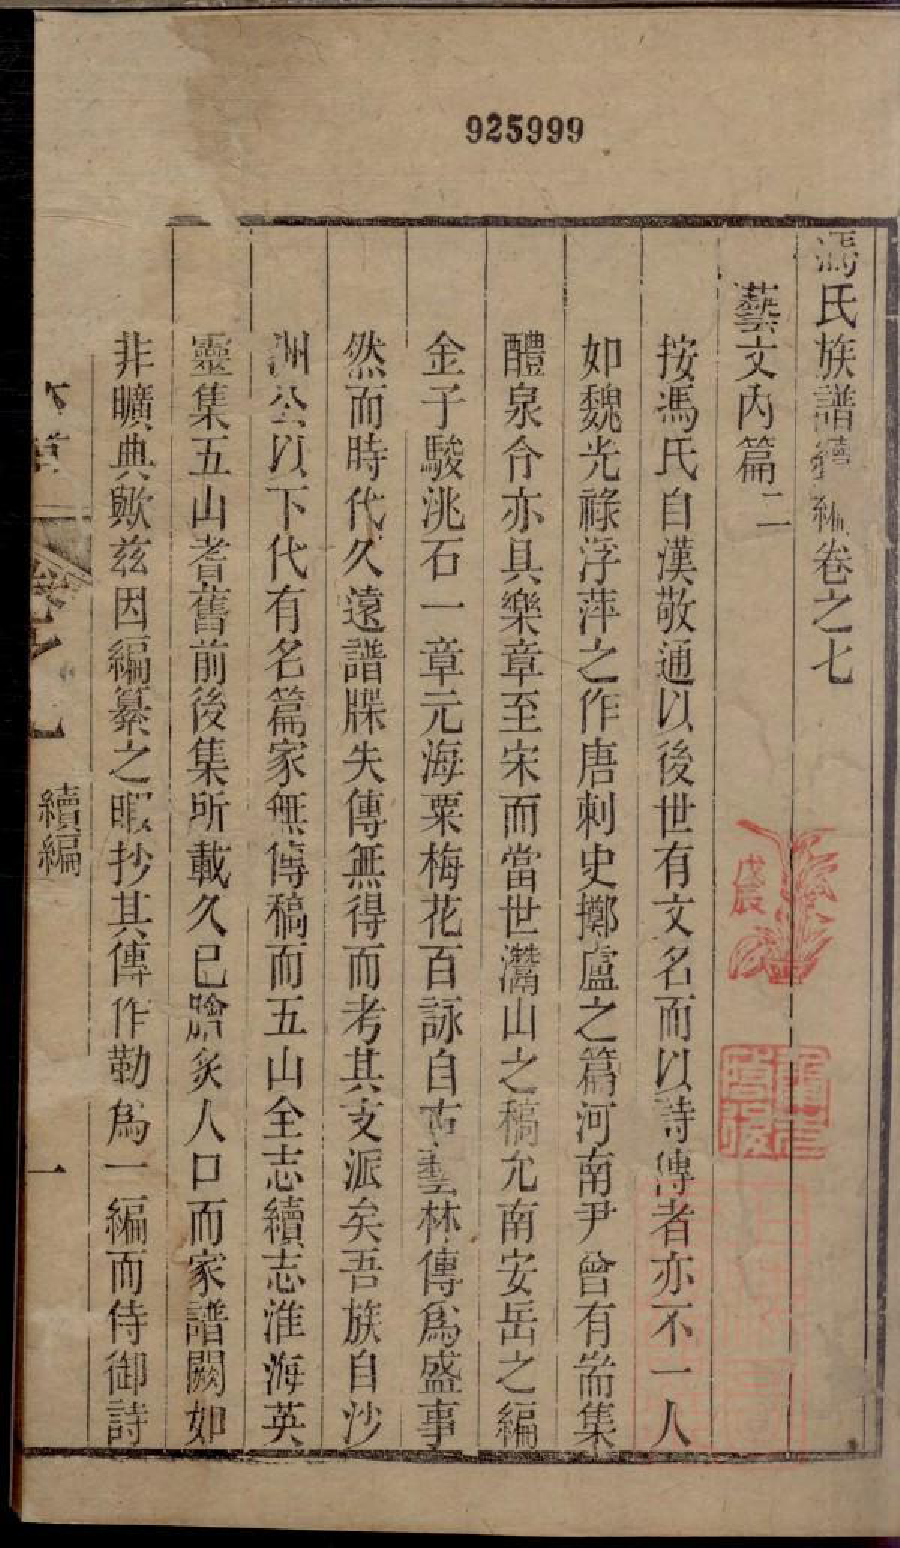 925999
馮氏族譜續編卷之七
藝文內篇二
按馮氏自漢敬通以後世有文名而以詩傳者亦不一人
如魏光祿浮萍之作唐刺史擲盧之篇河南尹曾有耑集
醴泉令亦具樂章至宋而當世灊山之稿允南安岳之編
金子駿洮石一章元海粟梅花百詠自古藝林傳爲盛事
然而時代久遠譜牒失傳無得而考其支派矣吾族自沙
洲公以下代有名篇家無傳稿而五山全志續志淮海英
靈集五山耆舊前後集所載久已膾炙人口而家譜闕如
非曠典歟茲因編纂之暇抄其傳作勒爲一編而侍御詩
卷之七
續編
一
戊辰